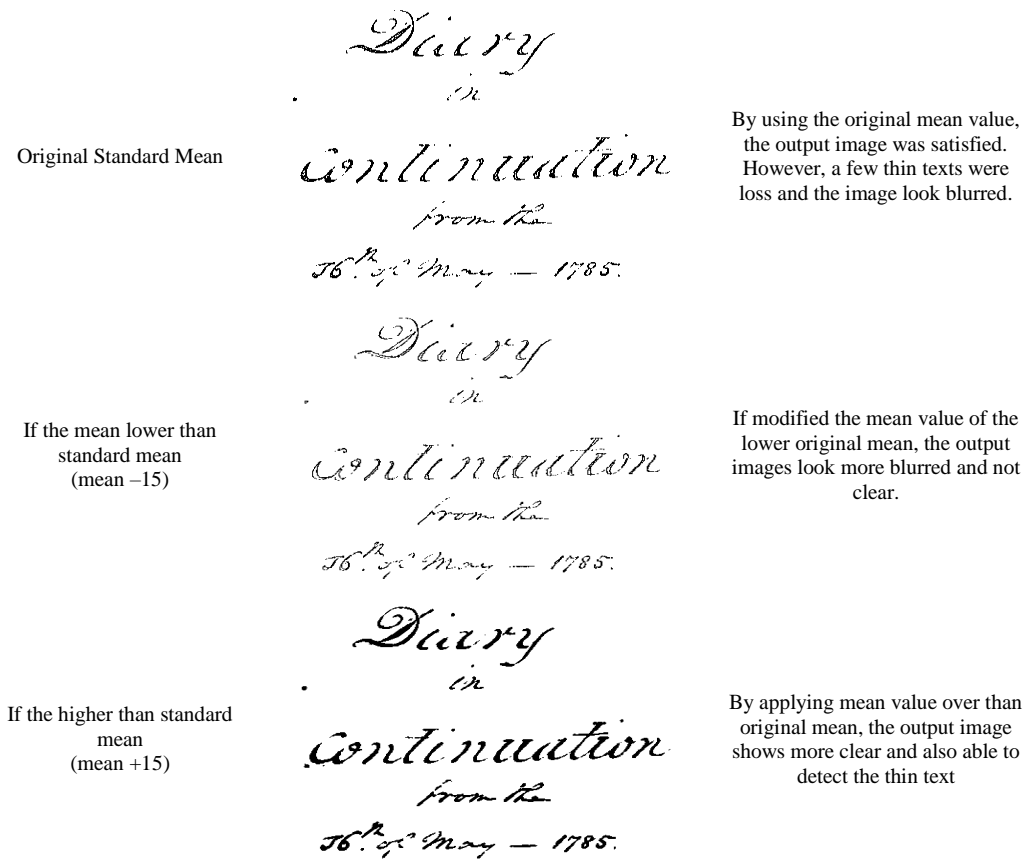 Original Standard Mean
Diary
in
continuation
from the
16.th of May — 1785.
By using the original mean value,
the output image was satisfied.
However, a few thin texts were
loss and the image look blurred.
If the mean lower than
standard mean
(mean –15)
Diary
in
continuation
from the
16.th of May — 1785.
If modified the mean value of the
lower original mean, the output
images look more blurred and not
clear.
If the higher than standard
mean
(mean +15)
Diary
in
continuation
from the
16.th of May — 1785.
By applying mean value over than
original mean, the output image
shows more clear and also able to
detect the thin text